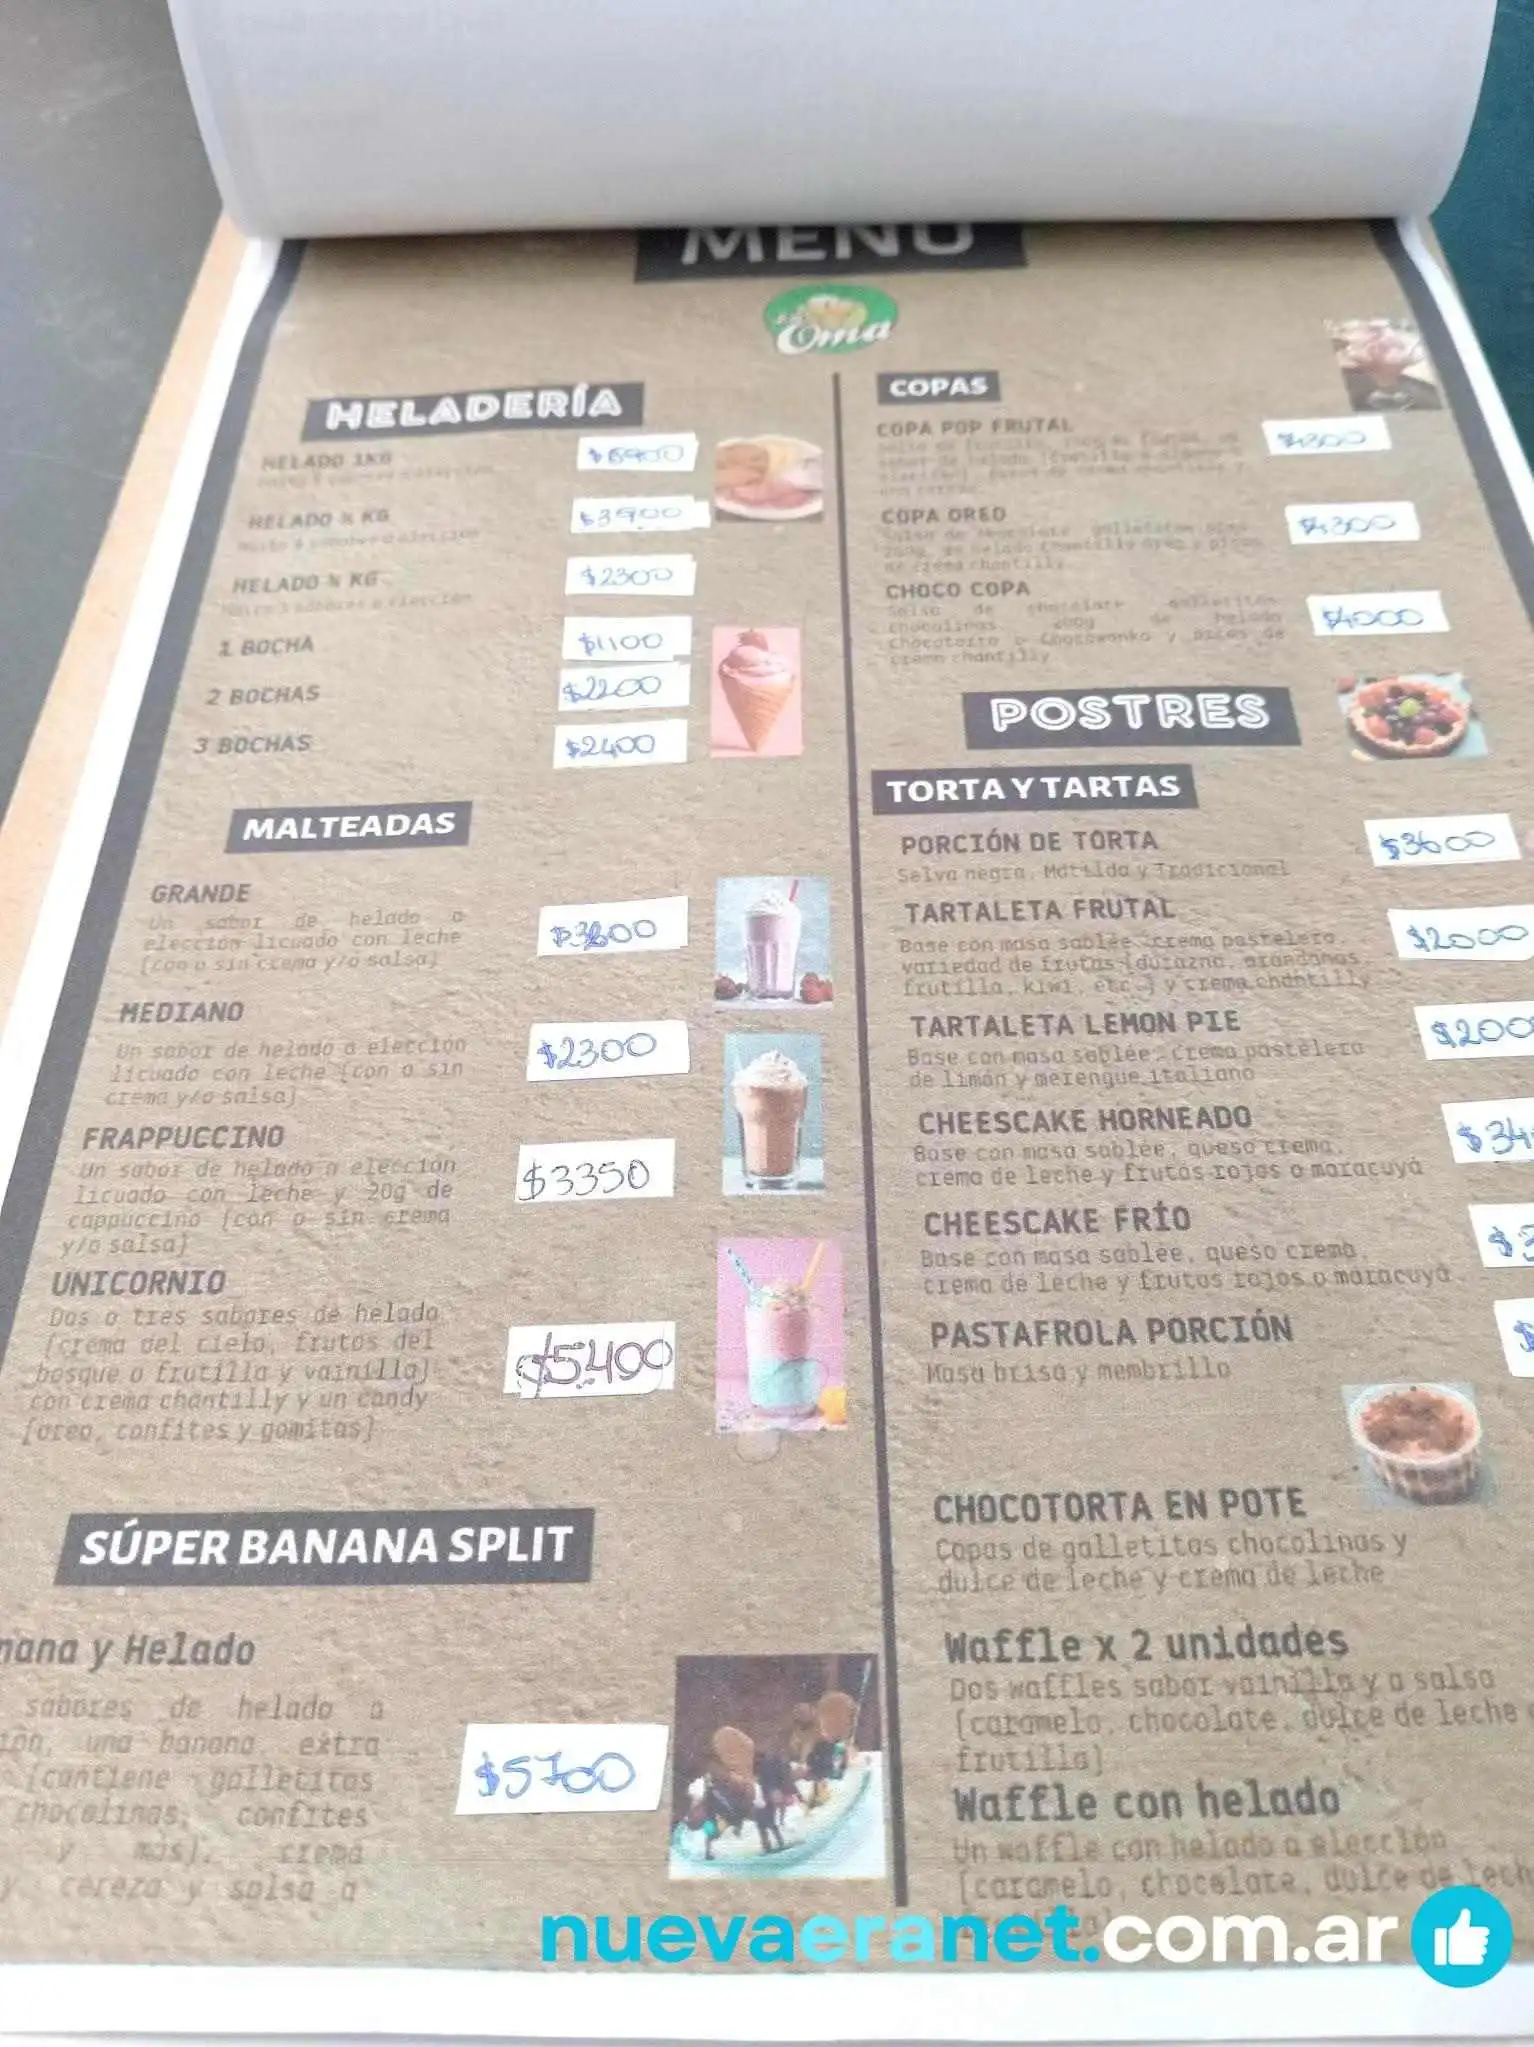 MENÚ
Oma
HELADERÍA
HELADO 1KG
HELADO ½ KG $3900
HELADO ¼ KG $2300
1 BOCHA $1100
2 BOCHAS $2200
3 BOCHAS $2400
MALTEADAS
GRANDE
Un sabor de helado a
elección licuado con leche
[con o sin crema y/o salsa]
MEDIANO $2300
Un sabor de helado a elección
licuado con leche [con o sin
crema y/o salsa]
FRAPPUCCINO $3350
Un sabor de helado a elección
licuado con leche y 20g de
cappuccino [con o sin crema
y/o salsa]
UNICORNIO $5400
Dos o tres sabores de helado
[crema del cielo, frutos del
bosque o frutilla y vainilla]
con crema chantilly y un candy
[oreo, confites y gomitas]
SÚPER BANANA SPLIT
y Helado
sabores de helado a
una banana, extra $5700
[contiene galletitas
chocolinas, confites
y más], crema
y cereza y salsa a
COPAS
COPA POP FRUTAL $4300
COPA OREO $4300
Salsa de chocolate galletitas
de crema chantilly
CHOCO COPA $4000
Salsa de chocolate galletitas
chocolinas 200g de helado
Chocotorta o Chocowonka y picos de
crema chantilly
POSTRES
TORTA Y TARTAS
PORCIÓN DE TORTA $3600
Selva negra, Matilda y Tradicional
TARTALETA FRUTAL $2000
Base con masa sablée, crema pastelera,
variedad de frutas [durazno, arándanos,
frutilla, kiwi, etc.] y crema chantilly
TARTALETA LEMON PIE $200
Base con masa sablée, crema pastelera
de limón y merengue italiano
CHEESCAKE HORNEADO $34
Base con masa sablée, queso crema,
crema de leche y frutos rojos o maracuyá
CHEESCAKE FRÍO $3
Base con masa sablée, queso crema,
crema de leche y frutos rojos o maracuyá
PASTAFROLA PORCIÓN $
Masa brisa y membrillo
CHOCOTORTA EN POTE
Capas de galletitas chocolinas y
dulce de leche y crema de leche
Waffle x 2 unidades
Dos waffles sabor vainilla y a salsa
[caramelo, chocolate, dulce de leche
frutilla]
Waffle con helado
Un waffle con helado a elección
[caramelo, chocolate, dulce de lech
nuevaeranet.com.ar